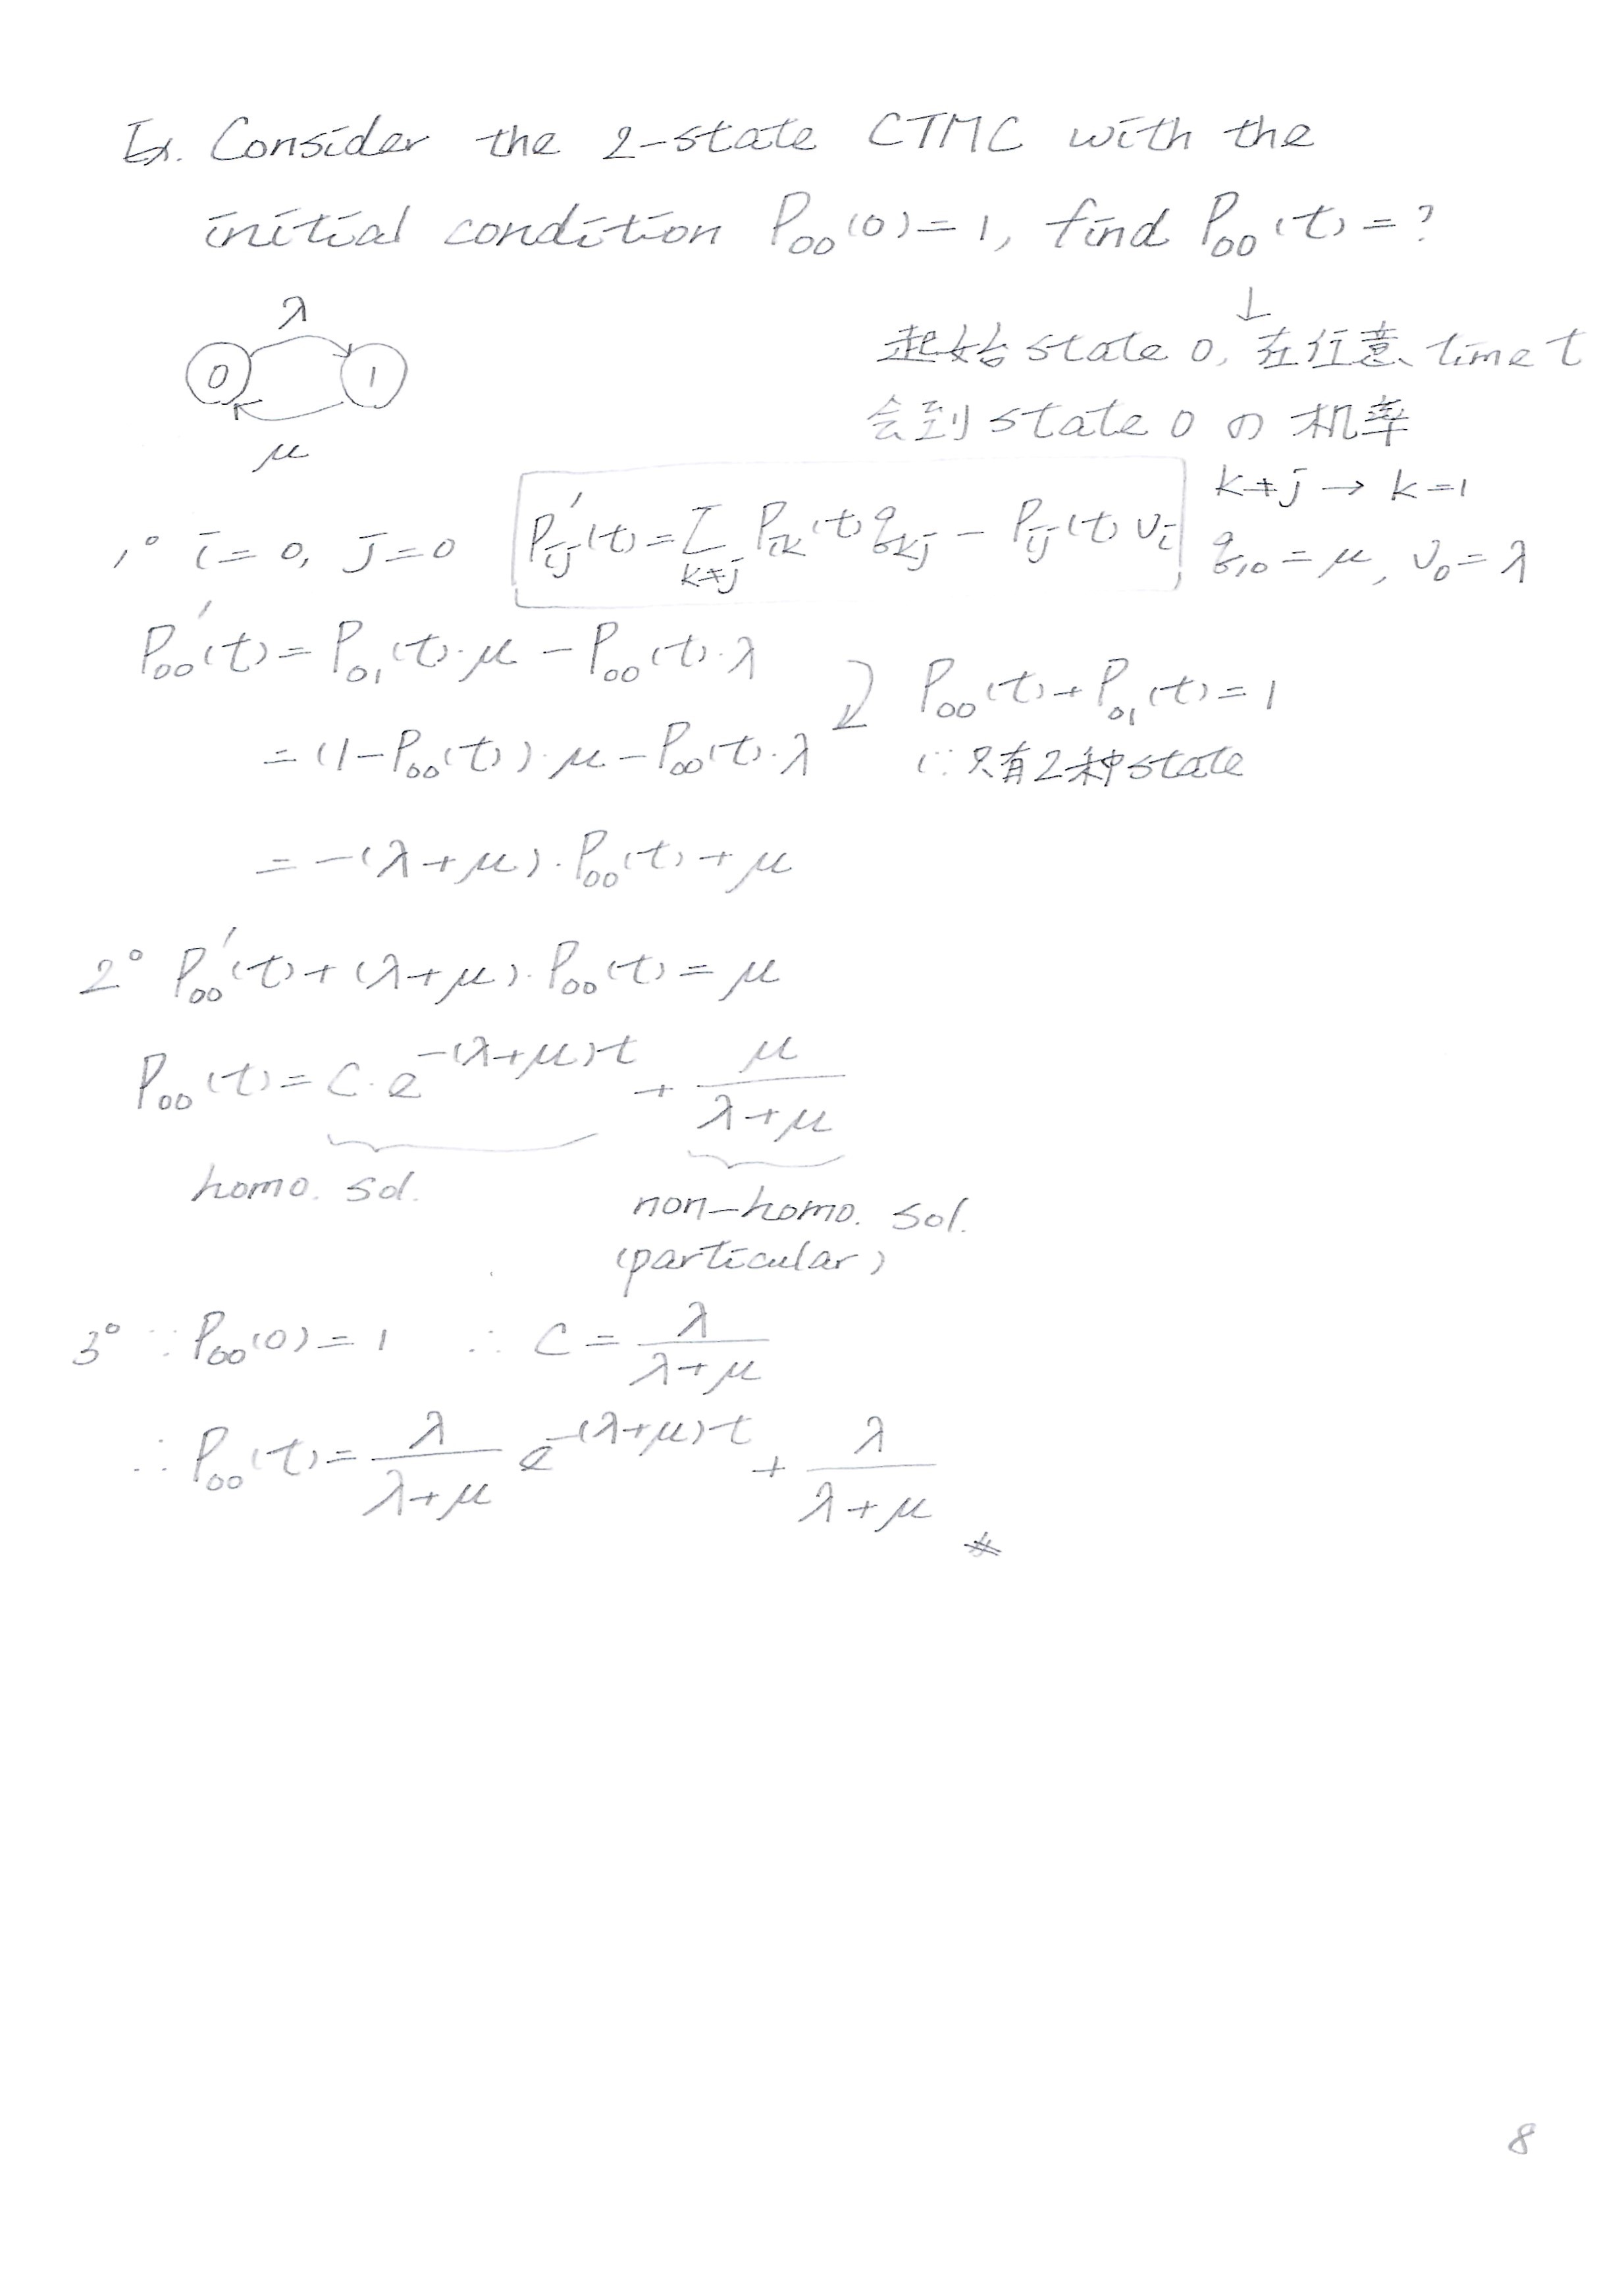 Ex. Consider the 2-state CTMC with the
initial condition P₀₀(0)=1, find P₀₀(t)=?
↓
起始 state 0, 在任意 time t
会到 state 0 の 机率
λ
0 1
μ
1° i=0, j=0 Pᵢⱼ'(t)=Σ_{k≠j} Pᵢₖ(t) qₖⱼ - Pᵢⱼ(t) vᵢ
k≠j → k=1
q₁₀=μ, v₀=λ
P₀₀'(t)=P₀₁(t)·μ - P₀₀(t)·λ
=(1-P₀₀(t))·μ - P₀₀(t)·λ
P₀₀(t)+P₀₁(t)=1
(∵只有2种state
=-(λ+μ)·P₀₀(t)+μ
2° P₀₀'(t)+(λ+μ)·P₀₀(t)=μ
P₀₀(t)=C·e^{-(λ+μ)t} + μ/(λ+μ)
homo. sol.
non-homo. sol.
(particular)
3° ∵P₀₀(0)=1 ∴ C=λ/(λ+μ)
∴P₀₀(t)=λ/(λ+μ) e^{-(λ+μ)t} + λ/(λ+μ) #
8